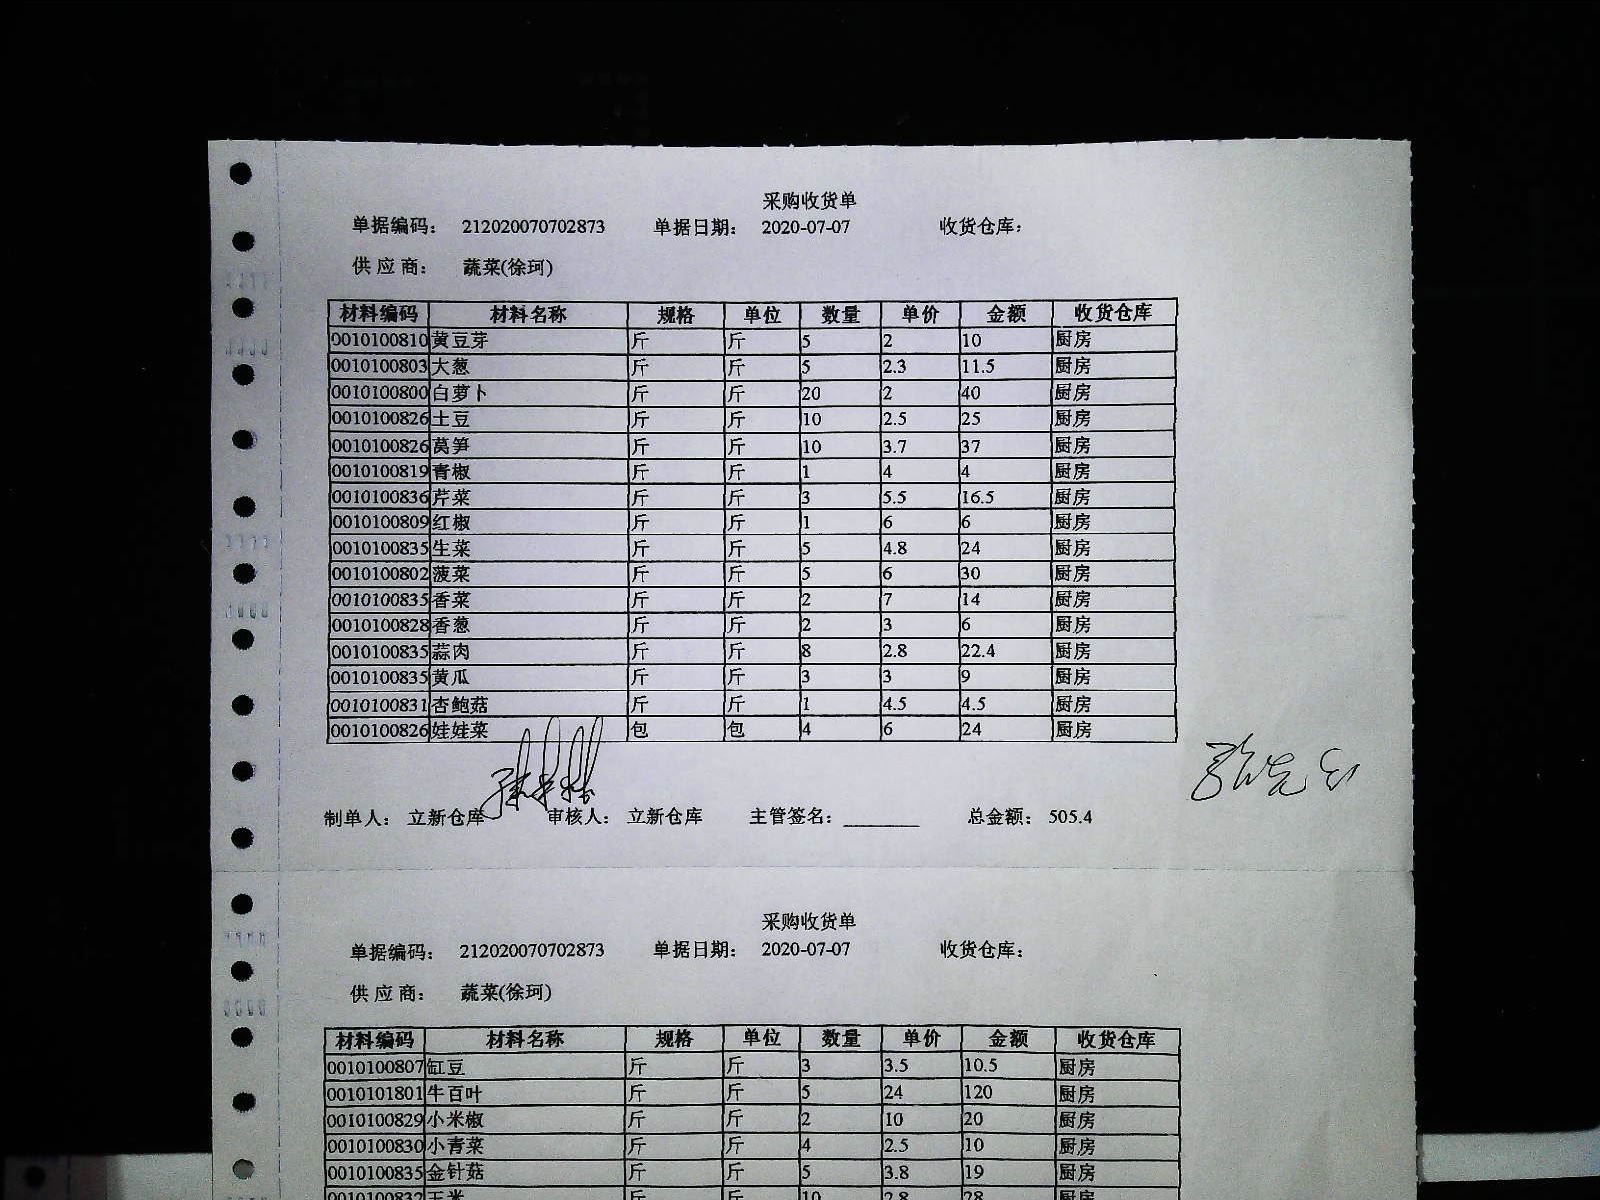 采购收货单
单据编码： 212020070702873 单据日期： 2020-07-07 收货仓库：
供应商： 蔬菜(徐珂)
材料编码 材料名称 规格 单位 数量 单价 金额 收货仓库
0010100810 黄豆芽 斤 斤 5 2 10 厨房
0010100803 大葱 斤 斤 5 2.3 11.5 厨房
0010100800 白萝卜 斤 斤 20 2 40 厨房
0010100826 土豆 斤 斤 10 2.5 25 厨房
0010100826 莴笋 斤 斤 10 3.7 37 厨房
0010100819 青椒 斤 斤 1 4 4 厨房
0010100836 芹菜 斤 斤 3 5.5 16.5 厨房
0010100809 红椒 斤 斤 1 6 6 厨房
0010100835 生菜 斤 斤 5 4.8 24 厨房
0010100802 菠菜 斤 斤 5 6 30 厨房
0010100835 香菜 斤 斤 2 7 14 厨房
0010100828 香葱 斤 斤 2 3 6 厨房
0010100835 蒜肉 斤 斤 8 2.8 22.4 厨房
0010100835 黄瓜 斤 斤 3 3 9 厨房
0010100831 杏鲍菇 斤 斤 1 4.5 4.5 厨房
0010100826 娃娃菜 包 包 4 6 24 厨房
制单人： 立新仓库 审核人： 立新仓库 主管签名： 总金额： 505.4
采购收货单
单据编码： 212020070702873 单据日期： 2020-07-07 收货仓库：
供应商： 蔬菜(徐珂)
材料编码 材料名称 规格 单位 数量 单价 金额 收货仓库
0010100807 缸豆 斤 斤 3 3.5 10.5 厨房
0010101801 牛百叶 斤 斤 5 24 120 厨房
0010100829 小米椒 斤 斤 2 10 20 厨房
0010100830 小青菜 斤 斤 4 2.5 10 厨房
0010100835 金针菇 斤 斤 5 3.8 19 厨房
0010100832 玉米 斤 斤 10 2.8 28 厨房